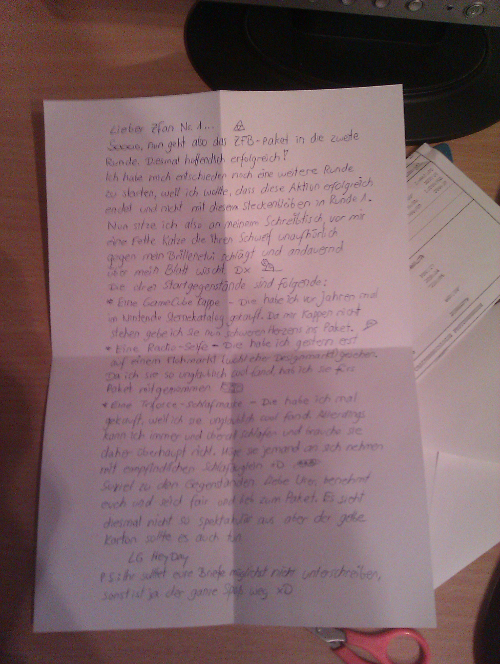 Lieber ZFan Nr. 1...
Sooooo, nun geht also das ZFB-Paket in die zweite
Runde. Diesmal hoffentlich erfolgreich!
Ich habe mich entschieden noch eine weitere Runde
zu starten, weil ich wollte, dass diese Aktion erfolgreich
endet und nicht mit diesem Steckenbleiben in Runde 1.
Nun sitze ich also an meinem Schreibtisch, vor mir
eine fette Katze die ihren Schweif unaufhörlich
gegen mein Brillenetui schlägt und andauernd
über mein Blatt wackelt Dx
Die drei Startgegenstände sind folgende:
* Eine GameCube Kappe - Die habe ich vor Jahren mal
im Nintendo Sternekatalog gekauft. Da mir Kappen nicht
stehen gebe ich sie nun schweren Herzens ins Paket.
* Eine Radio-Seife - Die habe ich gestern erst
auf einem Designmarkt gesehen.
Da ich sie so unglaublich cool fand, hab ich sie fürs
Paket mitgenommen
* Eine Triforce-Schlafmaske - Die habe ich mal
gekauft, weil ich sie unglaublich cool fand. Allerdings
kann ich immer und überall schlafen und brauche sie
daher überhaupt nicht. Möge sie jemand an sich nehmen
mit empfindlichen xD
zu den Gegenständen. Liebe User, benehmt
euch und seid fair und lieb zum Paket. Es sieht
diesmal nicht so spektakulär aus aber der gelbe
Karton sollte es auch tun
LG HeyDay
P.S.: Ihr solltet eure Briefe möglichst nicht unterschreiben,
sonst ist ja der ganze Spaß weg xD